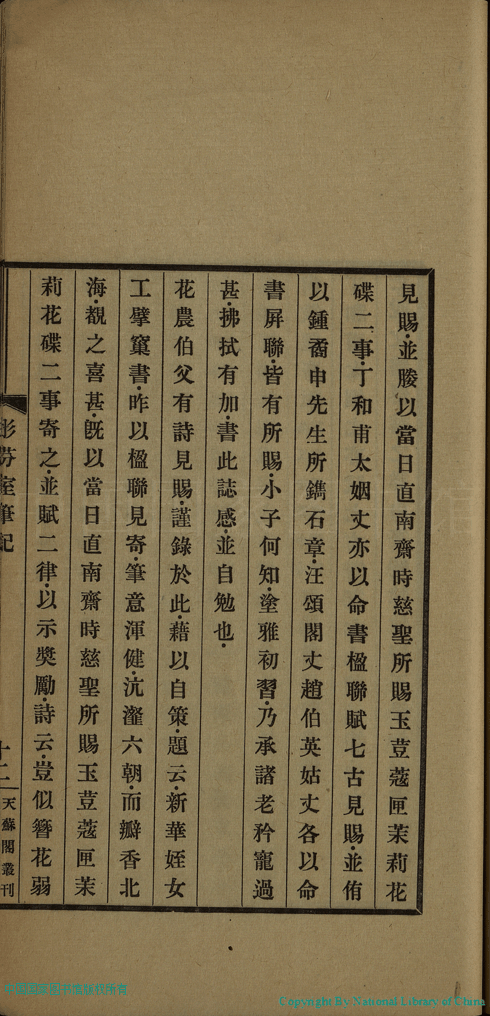 見賜·並媵以當日直南齋時慈聖所賜玉荳蔻匣茉莉花
碟二事·丁和甫太姻丈亦以命書楹聯賦七古見賜·並侑
以鍾矞申先生所鐫石章·汪頌閣丈趙伯英姑丈各以命
書屏聯·皆有所賜·小子何知·塗雅初習·乃承諸老矜寵過
甚·拂拭有加·書此誌感·並自勉也·
花農伯父有詩見賜·謹錄於此·藉以自策·題云·新華姪女
工擘窠書·昨以楹聯見寄·筆意渾健·沆瀣六朝·而瓣香北
海·覩之喜甚·旣以當日直南齋時慈聖所賜玉荳蔻匣茉
莉花碟二事寄之·並賦二律·以示獎勵·詩云·豈似簪花弱
彤芬室筆記
十二
天蘇閣叢刊
Copyright By National Library of China